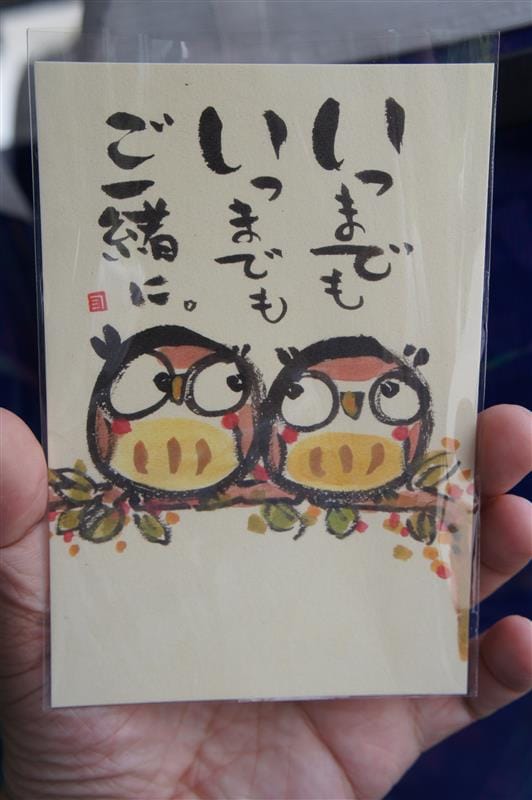 いつまでも
いつまでも
ご一緒に。